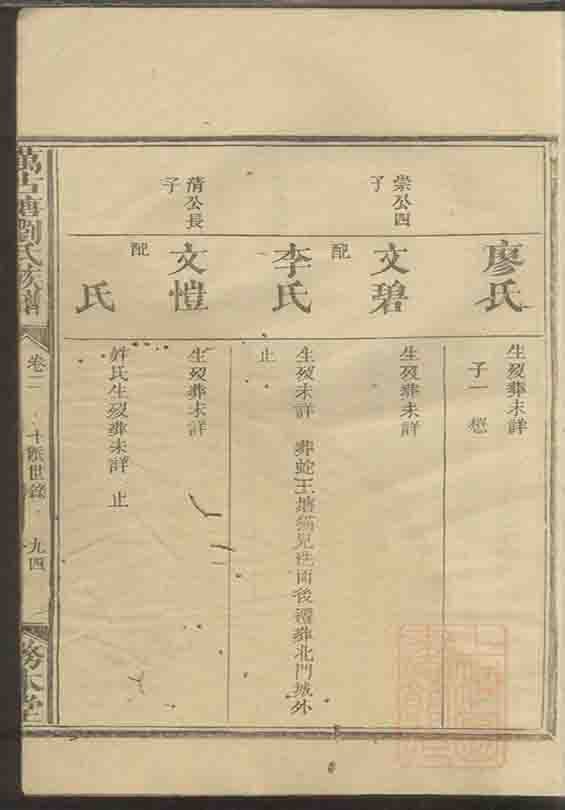 廖氏
生歿葬未詳
子一 𢡟
崇公四子
文碧
生歿葬未詳
配
李氏
生歿未詳 葬蛇王塘猫兒洗面後遷葬北門城外
止
清公長子
文愷
生歿葬未詳
配
氏
姓氏生歿葬未詳 止
萬古塘劉氏族譜
卷二
世錄
九四
務本堂